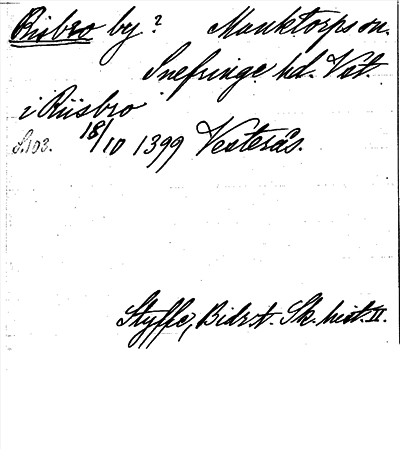 Riisbro by? Munktorps sn.
Snefringe hd. Vst.
i Riisbro
S. 103. 18/10 1399 Vesterås.
Styffe, Bidr. t. Sk. hist. II.